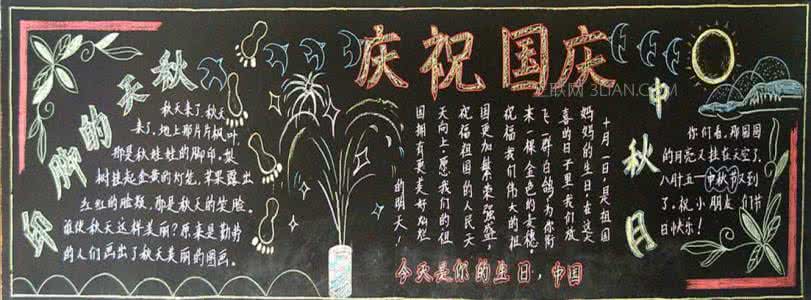 秋天的脚印
秋天来了,秋天
来了,地上那片片枫叶,
那是秋娃娃的脚印。梨
树挂起金黄的灯笼,苹果露出
红红的脸颊,那是秋天的笑脸。
谁使秋天这样美丽?原来是勤劳
的人们画出了秋天美丽的图画。
庆祝国庆
三联网 3LIAN.COM
十月一日是祖国
妈妈的生日,在这大
喜的日子里,我们放
飞一群白鸽,为你衔
来一棵金色的麦穗。
祝福我们伟大的祖
国更加繁荣强盛,
祝福祖国的人民天
天向上,愿我们的祖
国拥有更美好灿烂
的明天!
今天是你的生日,中国
中秋月
你们看,那圆圆
的月亮又挂在天空了,
八月十五—中秋节又到
了,祝小朋友们节
日快乐!